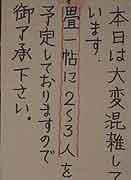 本日は大変混雑して
います。
畳一帖に2～3人を
予定しておりますので
御了承下さい。